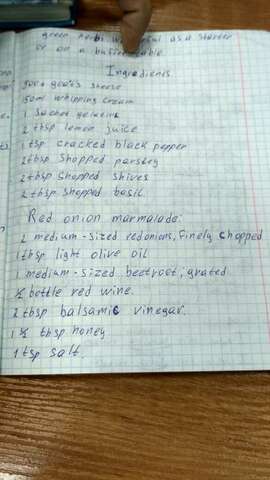 green
as a starter
or on a buffet table.
Ingredients
goat's cheese
50ml whipping cream
1 sachet gelatine
2 tbsp lemon juice
1 tsp cracked black pepper
2 tbsp shopped parsley
2 tbsp shopped shives
2 tbsp shopped basil
Red onion marmalade:
2 medium-sized red onions, finely chopped
1 tbsp light olive oil
1 medium-sized beetroot, grated
½ bottle red wine.
2 tbsp balsamic vinegar.
1 ½ tbsp honey
1 tsp salt.